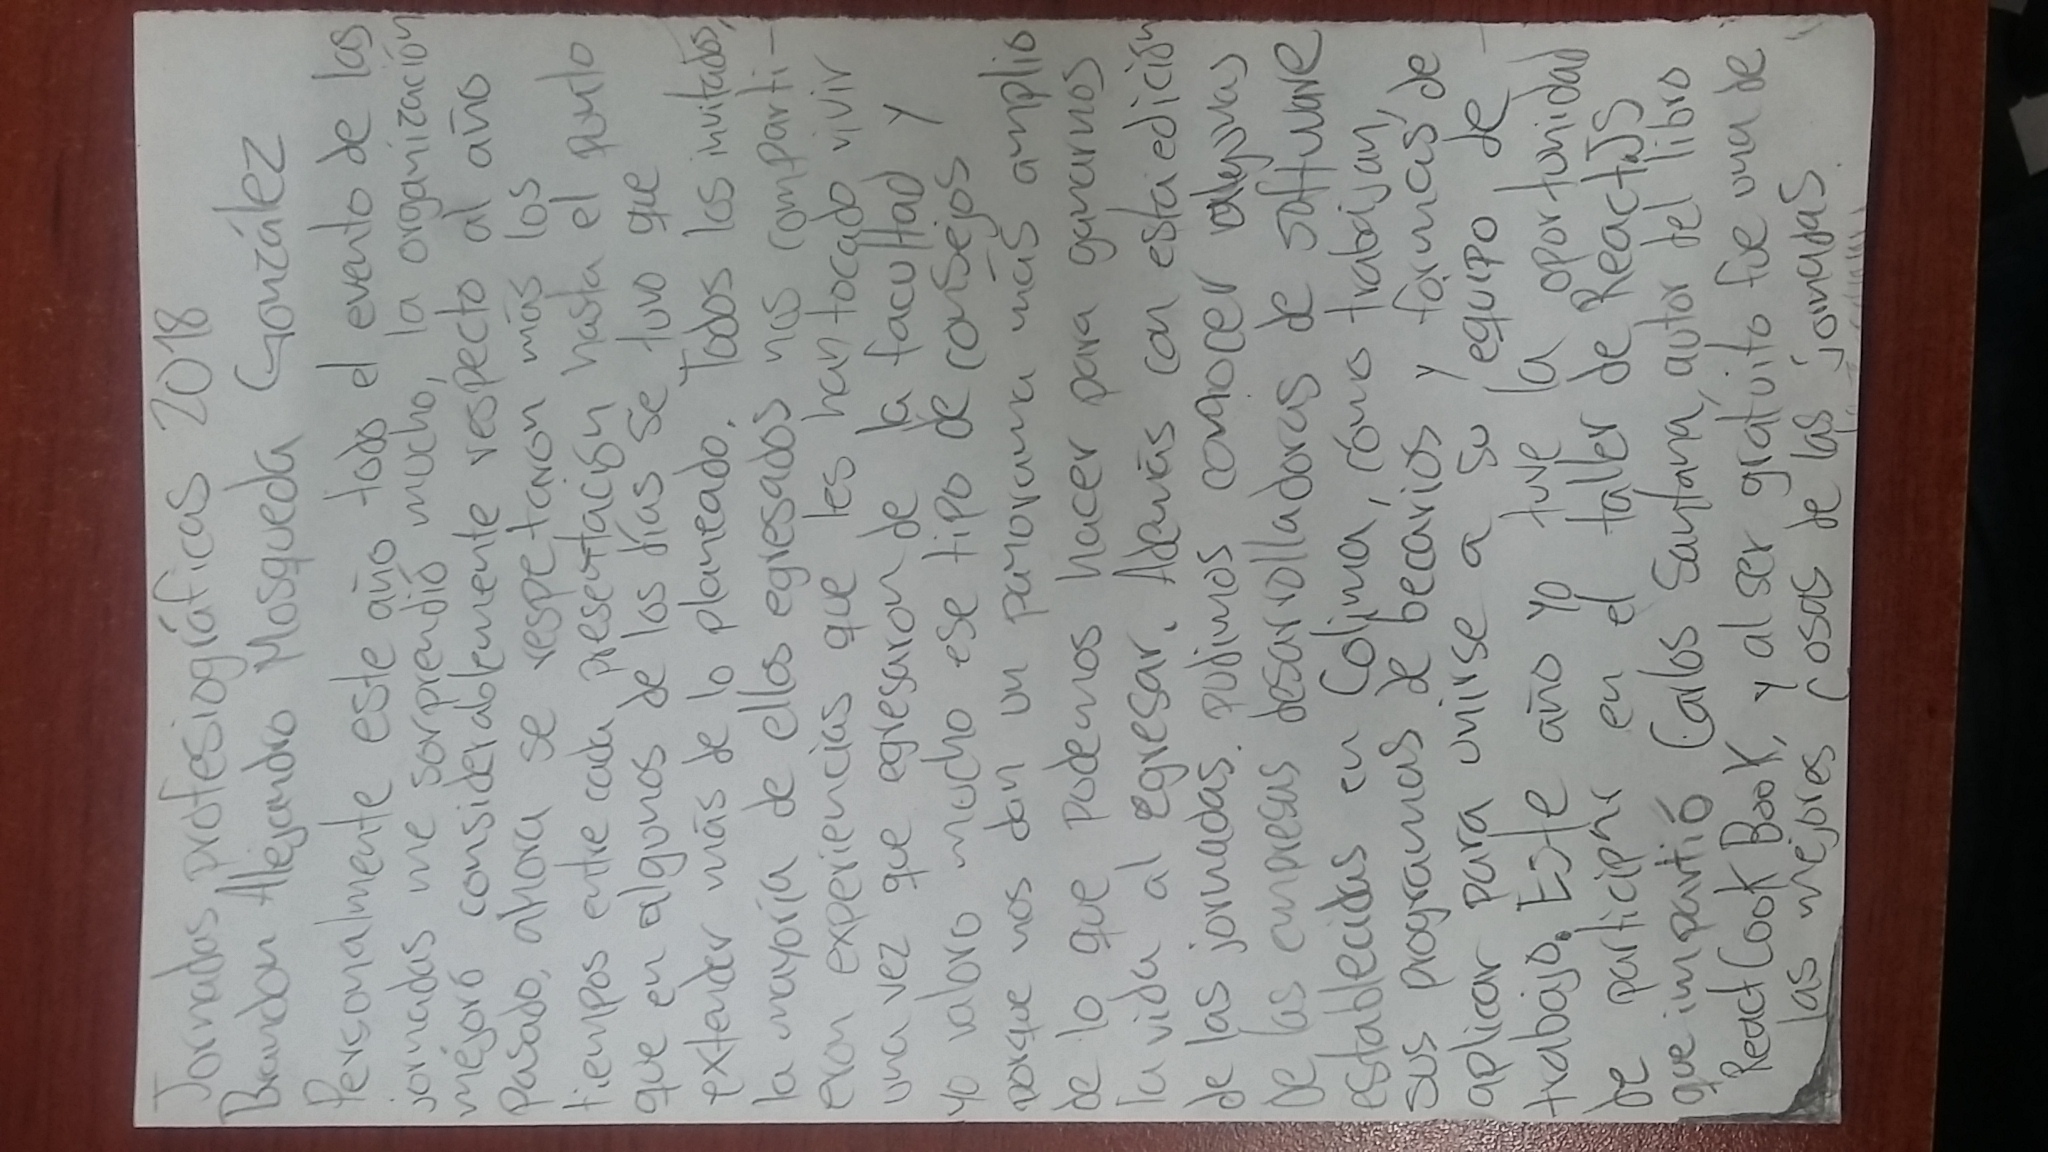 Jornadas profesiográficas 2018
Brandon Alejandro Mosqueda González
Personalmente este año todo el evento de las
jornadas me sorprendió mucho, la organización
mejoró considerablemente respecto al año
pasado, ahora se respetaron más los
tiempos entre cada presentación hasta el punto
que en algunos de los días se tuvo que
extender más de lo planeado. Todos los invitados,
la mayoría de ellos egresados nos comparti-
eron experiencias que les han tocado vivir
una vez que egresaron de la facultad y
yo valoro mucho ese tipo de consejos
porque nos dan un panorama más amplio
de lo que podemos hacer para ganarnos
la vida al egresar. Además con esta edición
de las jornadas. pudimos conocer algunas
de las empresas desarrolladoras de software
establecidas en Colima, cómo trabajan,
sus programas de becarios y formas de
aplicar para unirse a su equipo de
trabajo. Este año yo tuve la oportunidad
de participar en el taller de ReactJS
que impartió Carlos Santana, autor del libro
React Cook Book, y al ser gratuito fue una de
las mejores cosas de las jornadas.